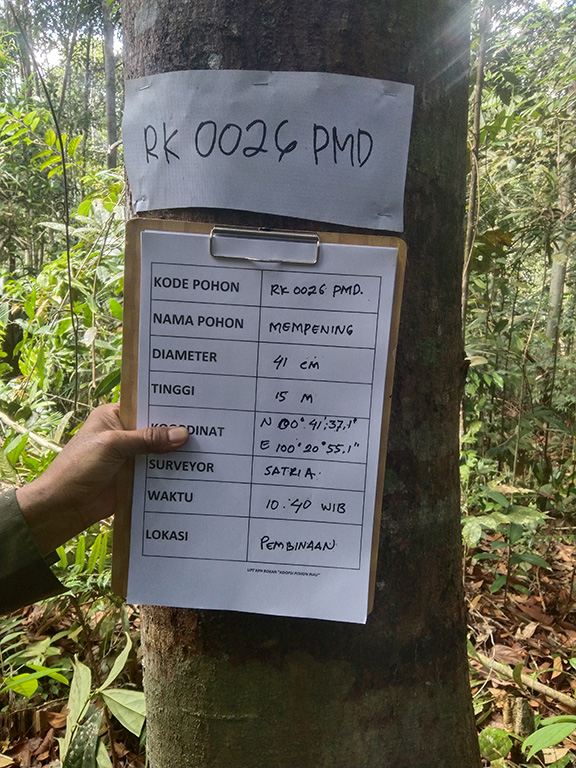 RK 0026 PMD
KODE POHON RK 0026 PMD.
NAMA POHON MEMPENING
DIAMETER 41 cm
TINGGI 15 M
KOORDINAT N 00° 41' 37.1"
E 100° 20' 55.1"
SURVEYOR SATRIA.
WAKTU 10:40 WIB
LOKASI PEMBINAAN.
UPT KPH ROKAN "ADOPSI POHON RIAU"